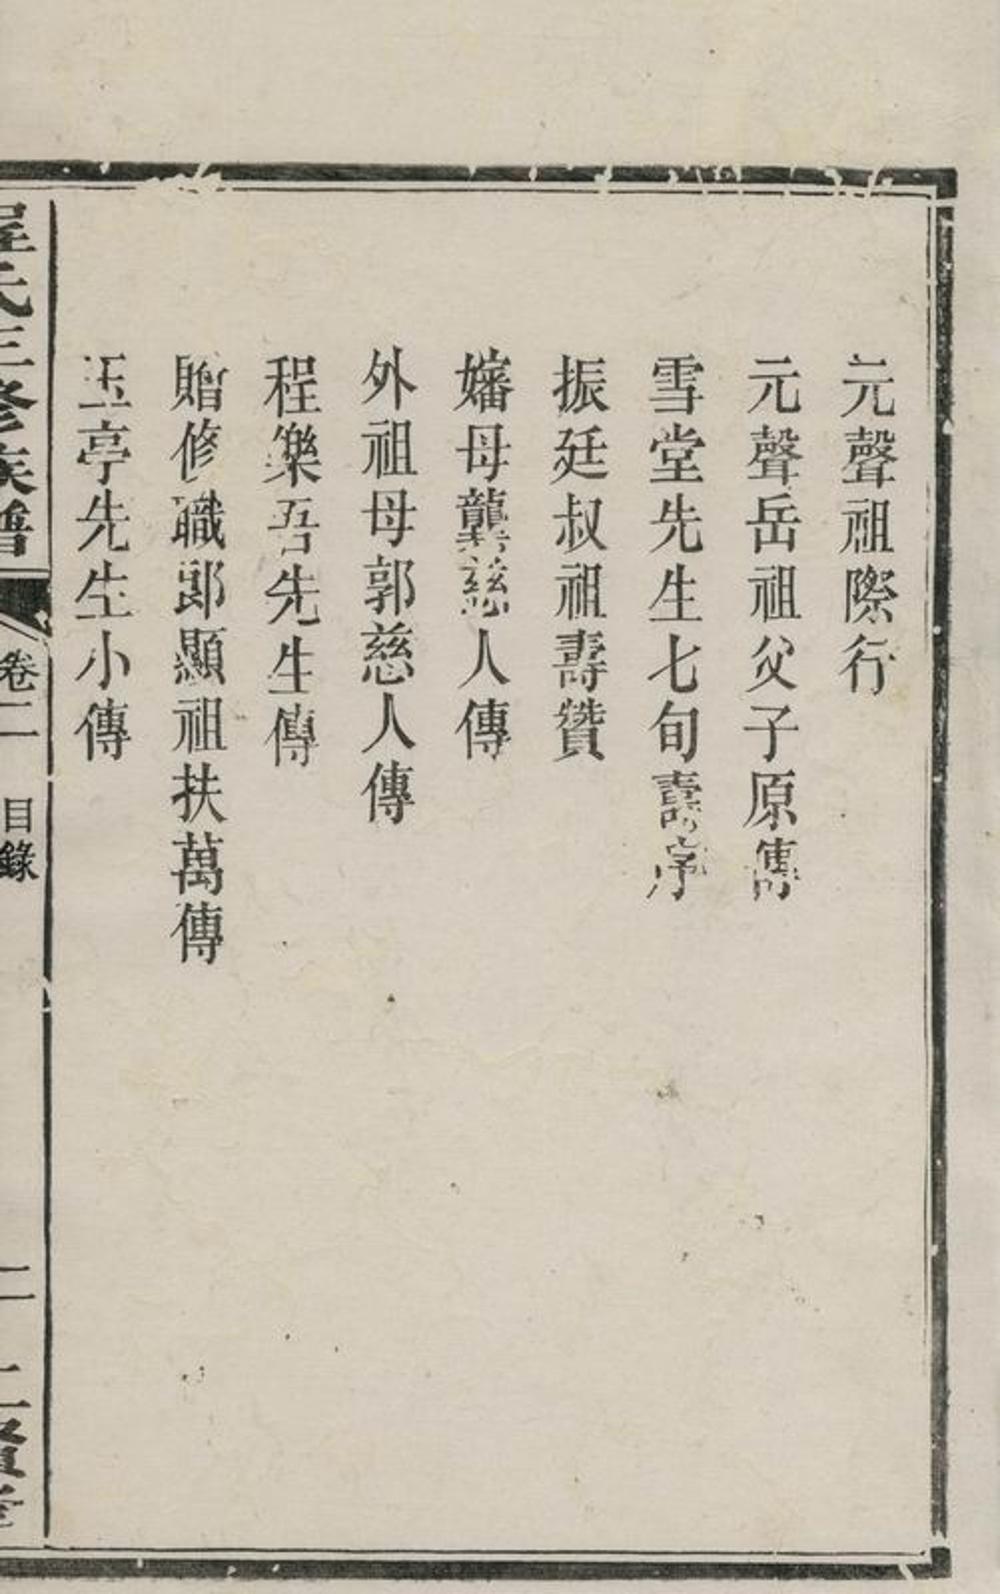 元聲祖際行
元聲岳祖父子原傳
雪堂先生七旬壽序
振廷叔祖壽贊
嬸母龔慈人傳
外祖母郭慈人傳
程樂吾先生傳
贈修職郎顯祖扶萬傳
玉亭先生小傳
程氏三修族譜 卷二 目錄 二 二賢堂